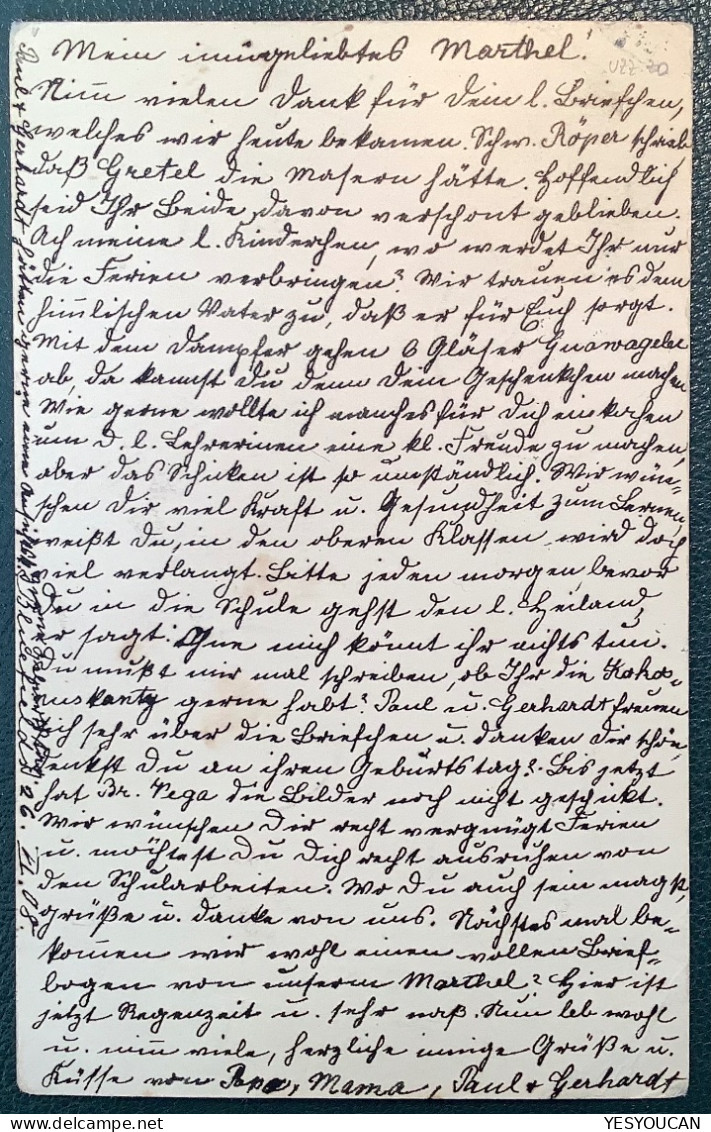 Mein innigeliebtes Marthel!
Nim̅ vielen Dank für Dein l. Briefchen,
welches wir heute bekamen. Schw. Röper schrieb
daß Gretel die Masern hätte. Hoffendlich
seid Ihr Beide davon verschont geblieben.
Ach meine l. Kinderchen, wo werdet Ihr nur
die Ferien verbringen? Wir trauen es dem
him̅lischen Vater zu, daß er für Euch sorgt.
Mit dem Dampfer gehen 6 Gläser
ab, da kannst Du denn Dein Geschenkchen machen
Wie gerne wollte ich manches für Dich einkochen
um D. l. Lehrerinen eine kl. Freude zu machen,
aber das Schicken ist so umständlich. Wir wün-
schen Dir viel Kraft u. Gesundheit zum Lernen,
weißt Du, in den oberen Klassen, wird doch
viel verlangt. Bitte jeden morgen, bevor
Du in die Schule gehst den l. Heiland,
er sagt: One mich könnt ihr nichts tun.
Du mußt mir mal schreiben, ob Ihr die Koko-
gerne habt? Paul u. Gerhardt freuen
sich sehr über die Briefchen u. danken Dir schön,
denkst Du an ihren Geburtstag? Bis jetzt
hat Br. Vega die Bilder noch nicht geschickt.
Wir wünschen Dir recht vergnügt Ferien
u. möchtest Du Dich recht ausruhen von
den Schularbeiten. Wo Du auch sein magst,
grüße u. danke von uns. Nächstes mal be-
kom̅en wir wohl einen vollen Brief-
bogen von unserm Marthel? Hier ist
jetzt Regenzeit u. sehr naß. Nun leb wohl
u. nim̅ viele, herzliche innige Grüße u.
Küsse von Papa, Mama, Paul + Gerhardt
Paul + Gerhardt hätten gerne eine Ansichts
Bielefeld 26. VI. 08.
UZZ 20
YESYOUCAN